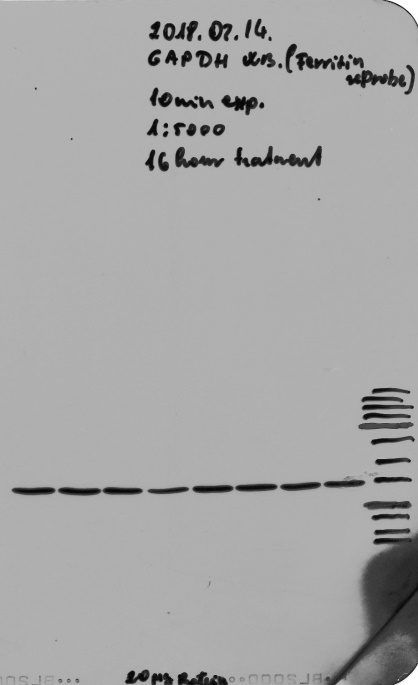 2018.02.14.
GAPDH WB. (Ferritin
reprobe)
10min exp.
1:5000
16 hour treatment
20 µg Protein